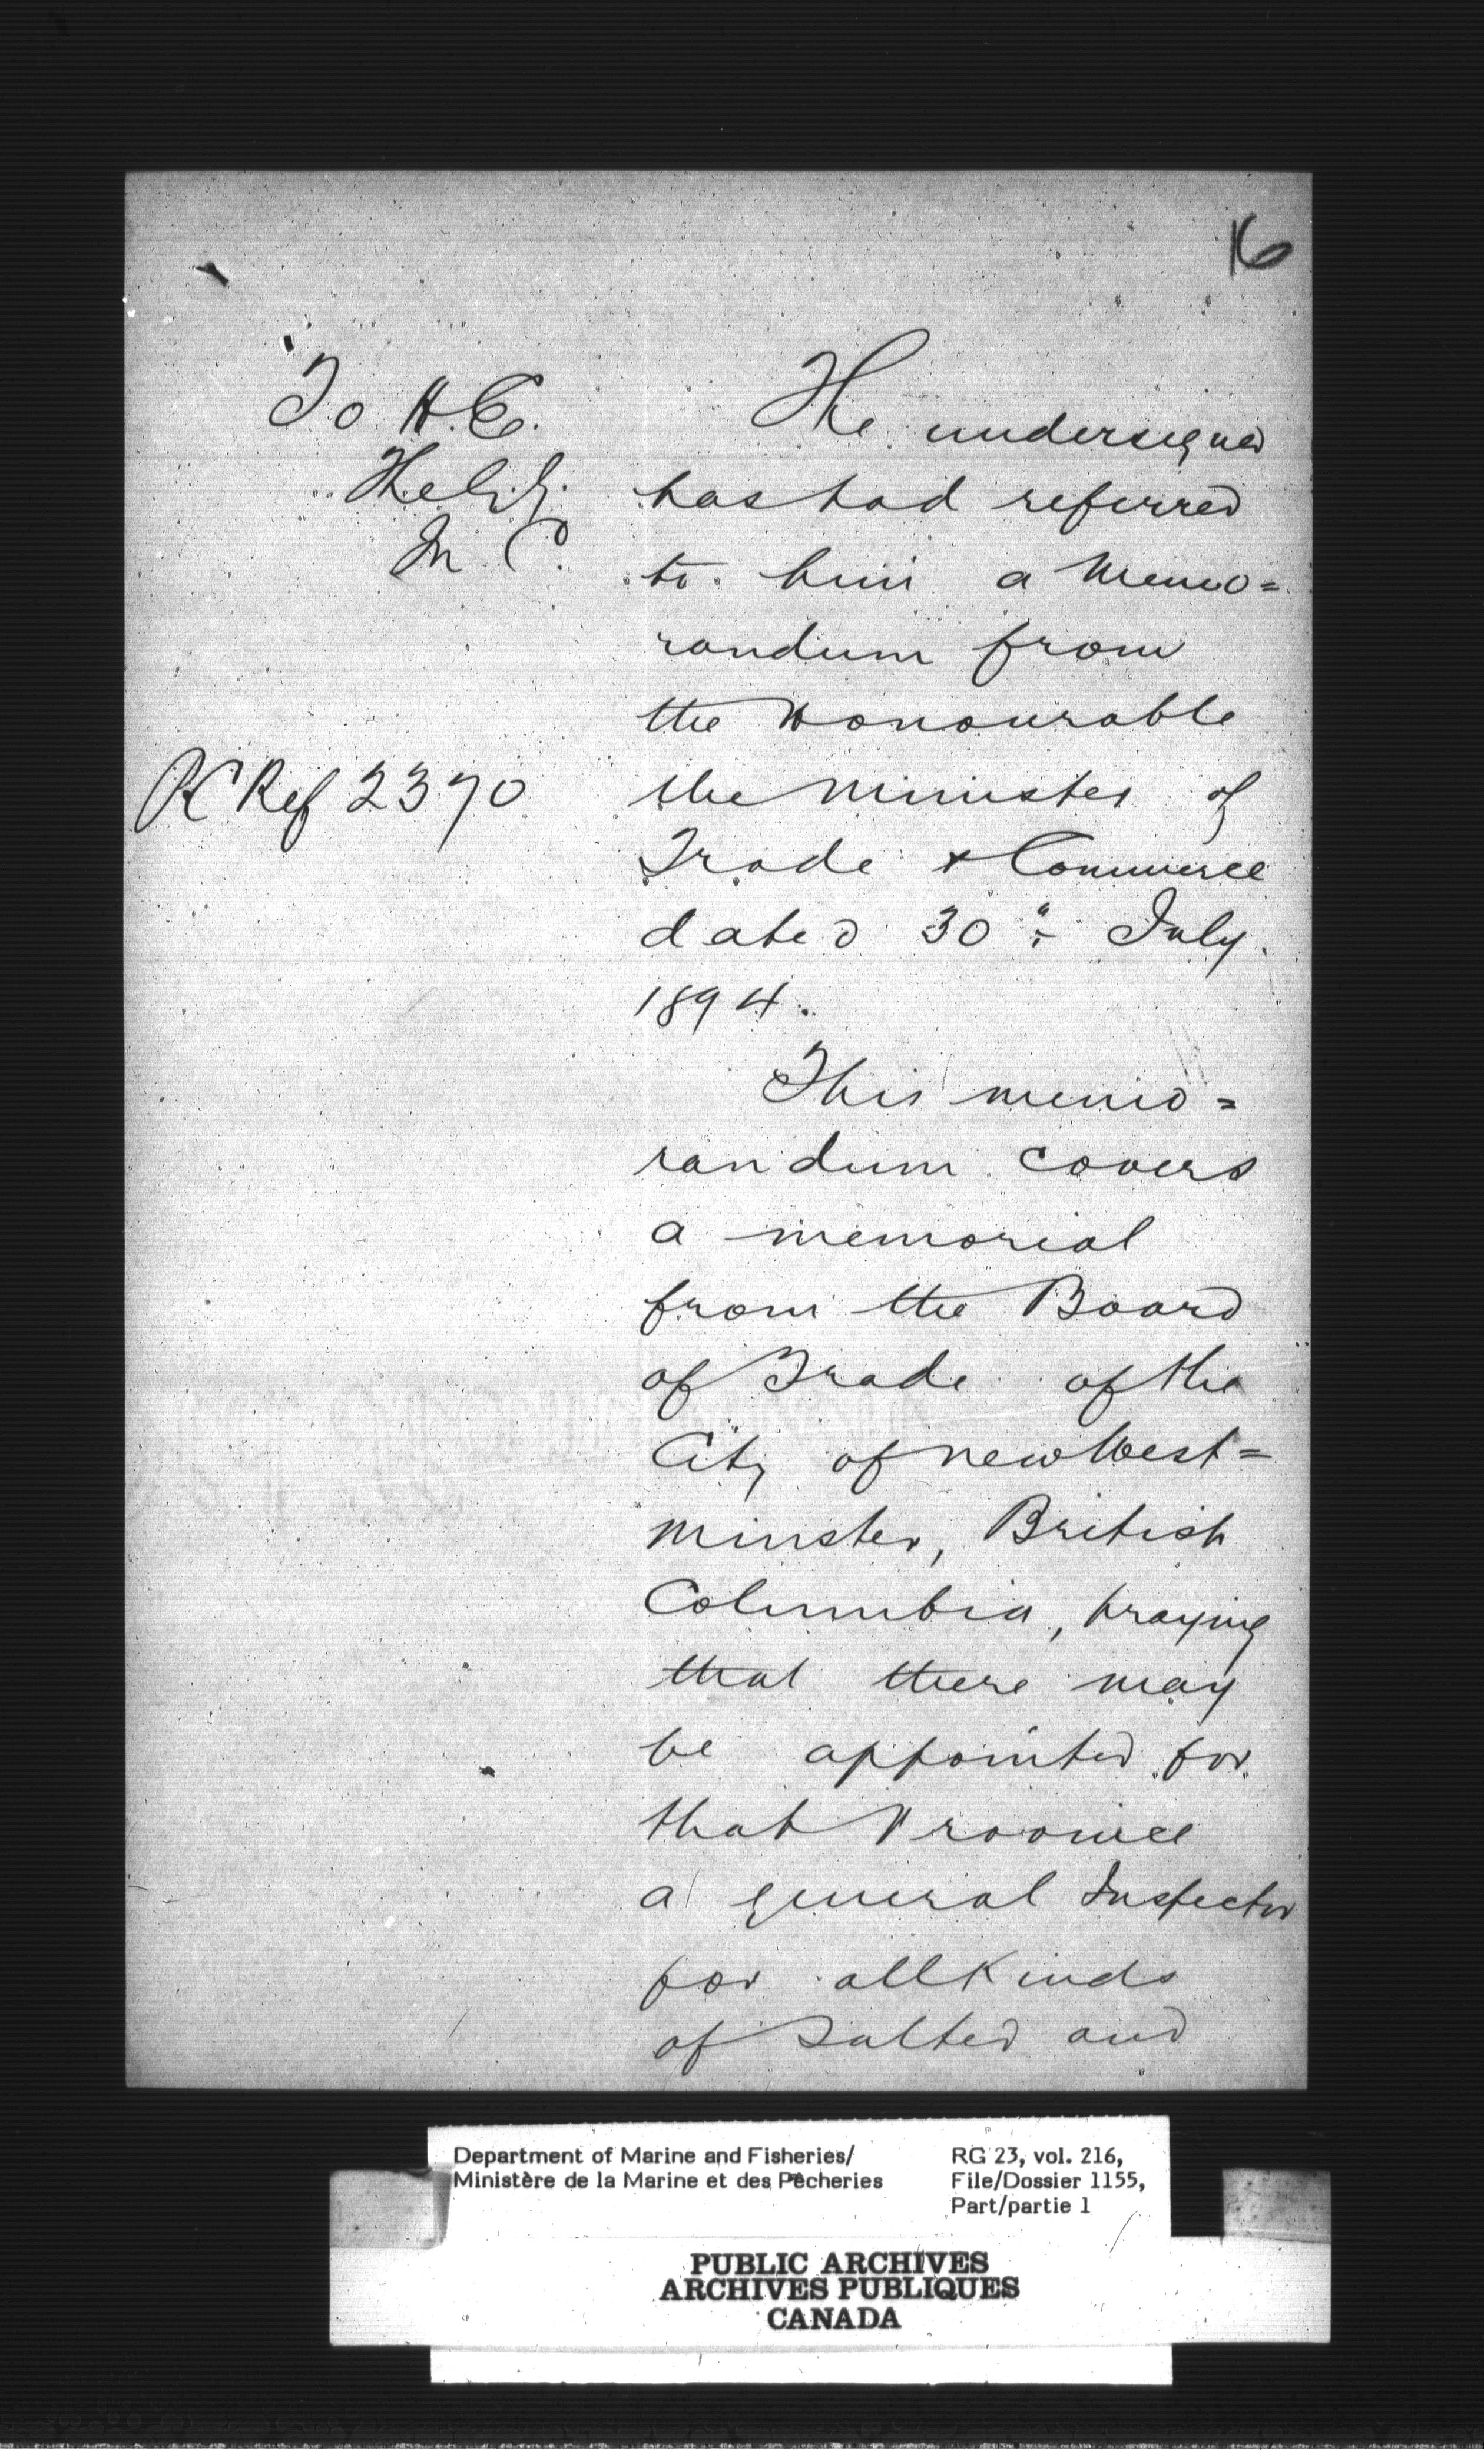 16
To H.E.
The G.G.
In C.
PC Ref 2370
The undersigned
has had referred
to him a Memo=
randum from
the Honourable
the Minister of
Trade & Commerce
dated 30" July
1894.
This memo=
randum covers
a memorial
from the Board
of Trade of the
City of New West=
minster, British
Columbia, praying
that there may
be appointed for
that Province
a general Inspector
for all kinds
of Salted and
Department of Marine and Fisheries/
Ministère de la Marine et des Pêcheries
RG 23, vol. 216,
File/Dossier 1155,
Part/partie 1
PUBLIC ARCHIVES
ARCHIVES PUBLIQUES
CANADA